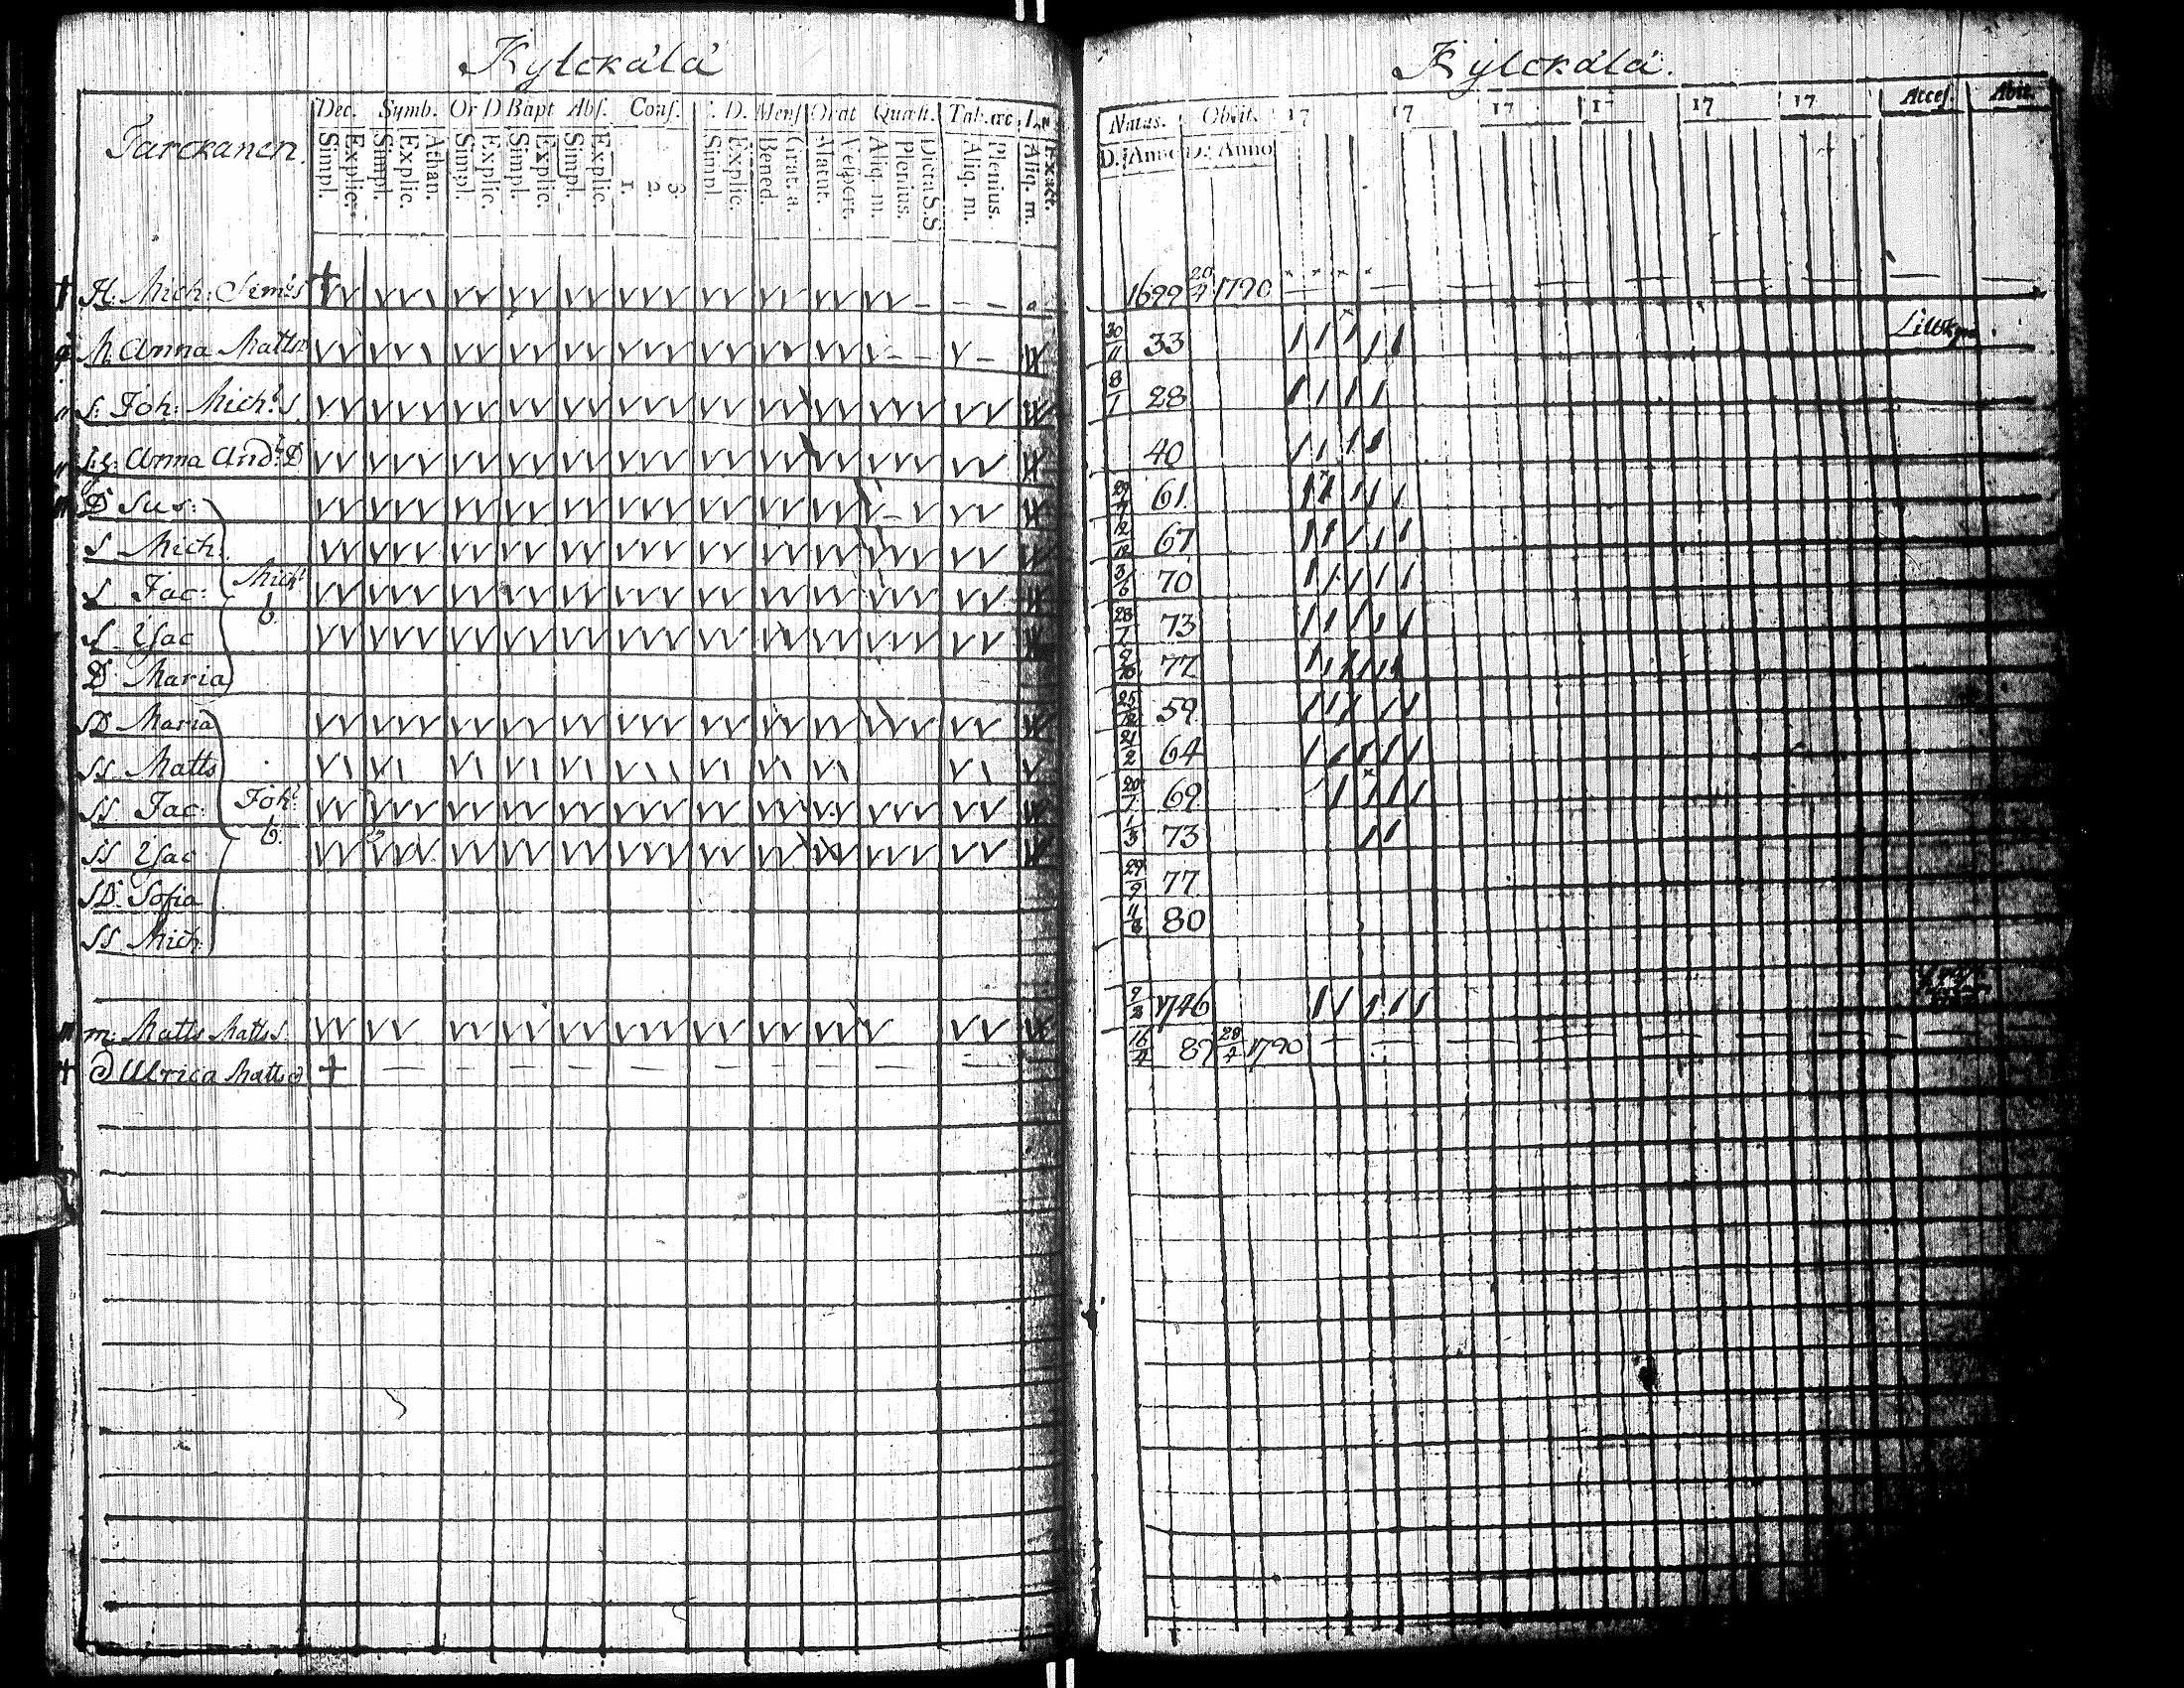 Kylckälä
Tarckanen.
Dec. Symb. Or D Bapt Abs. Conf. C. D. Mens Orat Quæst. Tab. œc
Simpl. Explic. Simpl. Explic. Athan. Simpl. Explic. Simpl. Explic. Simpl. Explic. 1. 2. 3. Simpl. Explic. Bened. Grat. a. Matut. Vespert. Aliq. m. Plenius. Dicta S.S Aliq. m. Plenius. Aliq. m. Exact.
† H. Mich: Sim: S
M Anna Matts
S: Joh: Mich: S
Anna And: D
D Sus:
S Mich:
S Jac: Mich:
S Isac b.
D Maria
SD Maria
SS Matts
SS Jac: Joh:
SS Isac b.
SD Sofia
SS Mich:
m: Matts Matts S.
† D Ulrica Matts D +
Kylckälä.
Natus. Obiit. 17 17 17 17 17 17 Acces. Abit.
D. Anno D. Anno
1699 20/4 1790
30/11 33
8/1 28
40
29/7 61
12/12 67
3/6 70
28/7 73
77
25/12 59
21/2 64
20/7 69
1/3 73
29/9 77
80
1746
16/4 87 1790